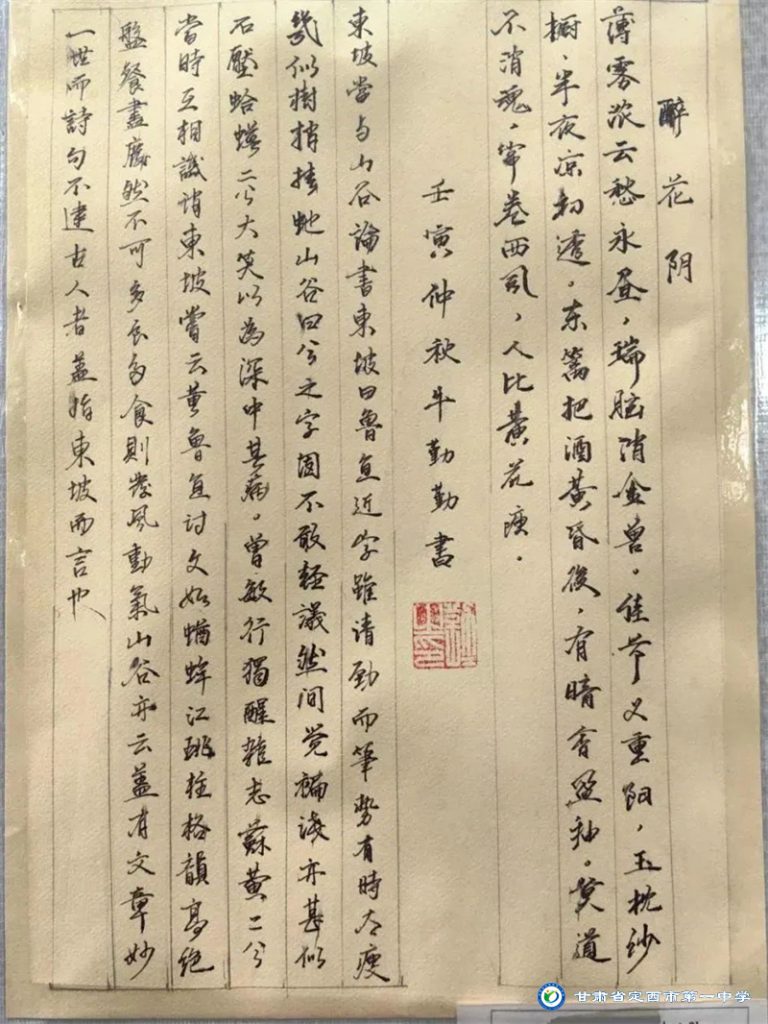 醉花阴
薄雾浓云愁永昼，瑞脑消金兽。佳节又重阳，玉枕纱
橱，半夜凉初透。东篱把酒黄昏後，有暗香盈袖。莫道
不消魂，帘卷西风，人比黄花瘦。
壬寅仲秋牛勤勤書
東坡嘗与山谷論書東坡曰魯直近字雖清勁而筆势有時太瘦
幾似樹梢挂虵山谷曰公之字固不敢轻議然间觉褊淺亦甚似
石壓蛤蟆二公大笑以為深中其病。曾敏行獨醒雜志蘇黄二公
當時互相譏誚東坡嘗云黄魯直詩文如蝤蛑江珧柱格韻高绝
盤餐盡廢然不可多食多食則發风動氣山谷亦云蓋有文章妙
一世而詩句不逮古人者蓋指東坡而言也
甘肃省定西市第一中学